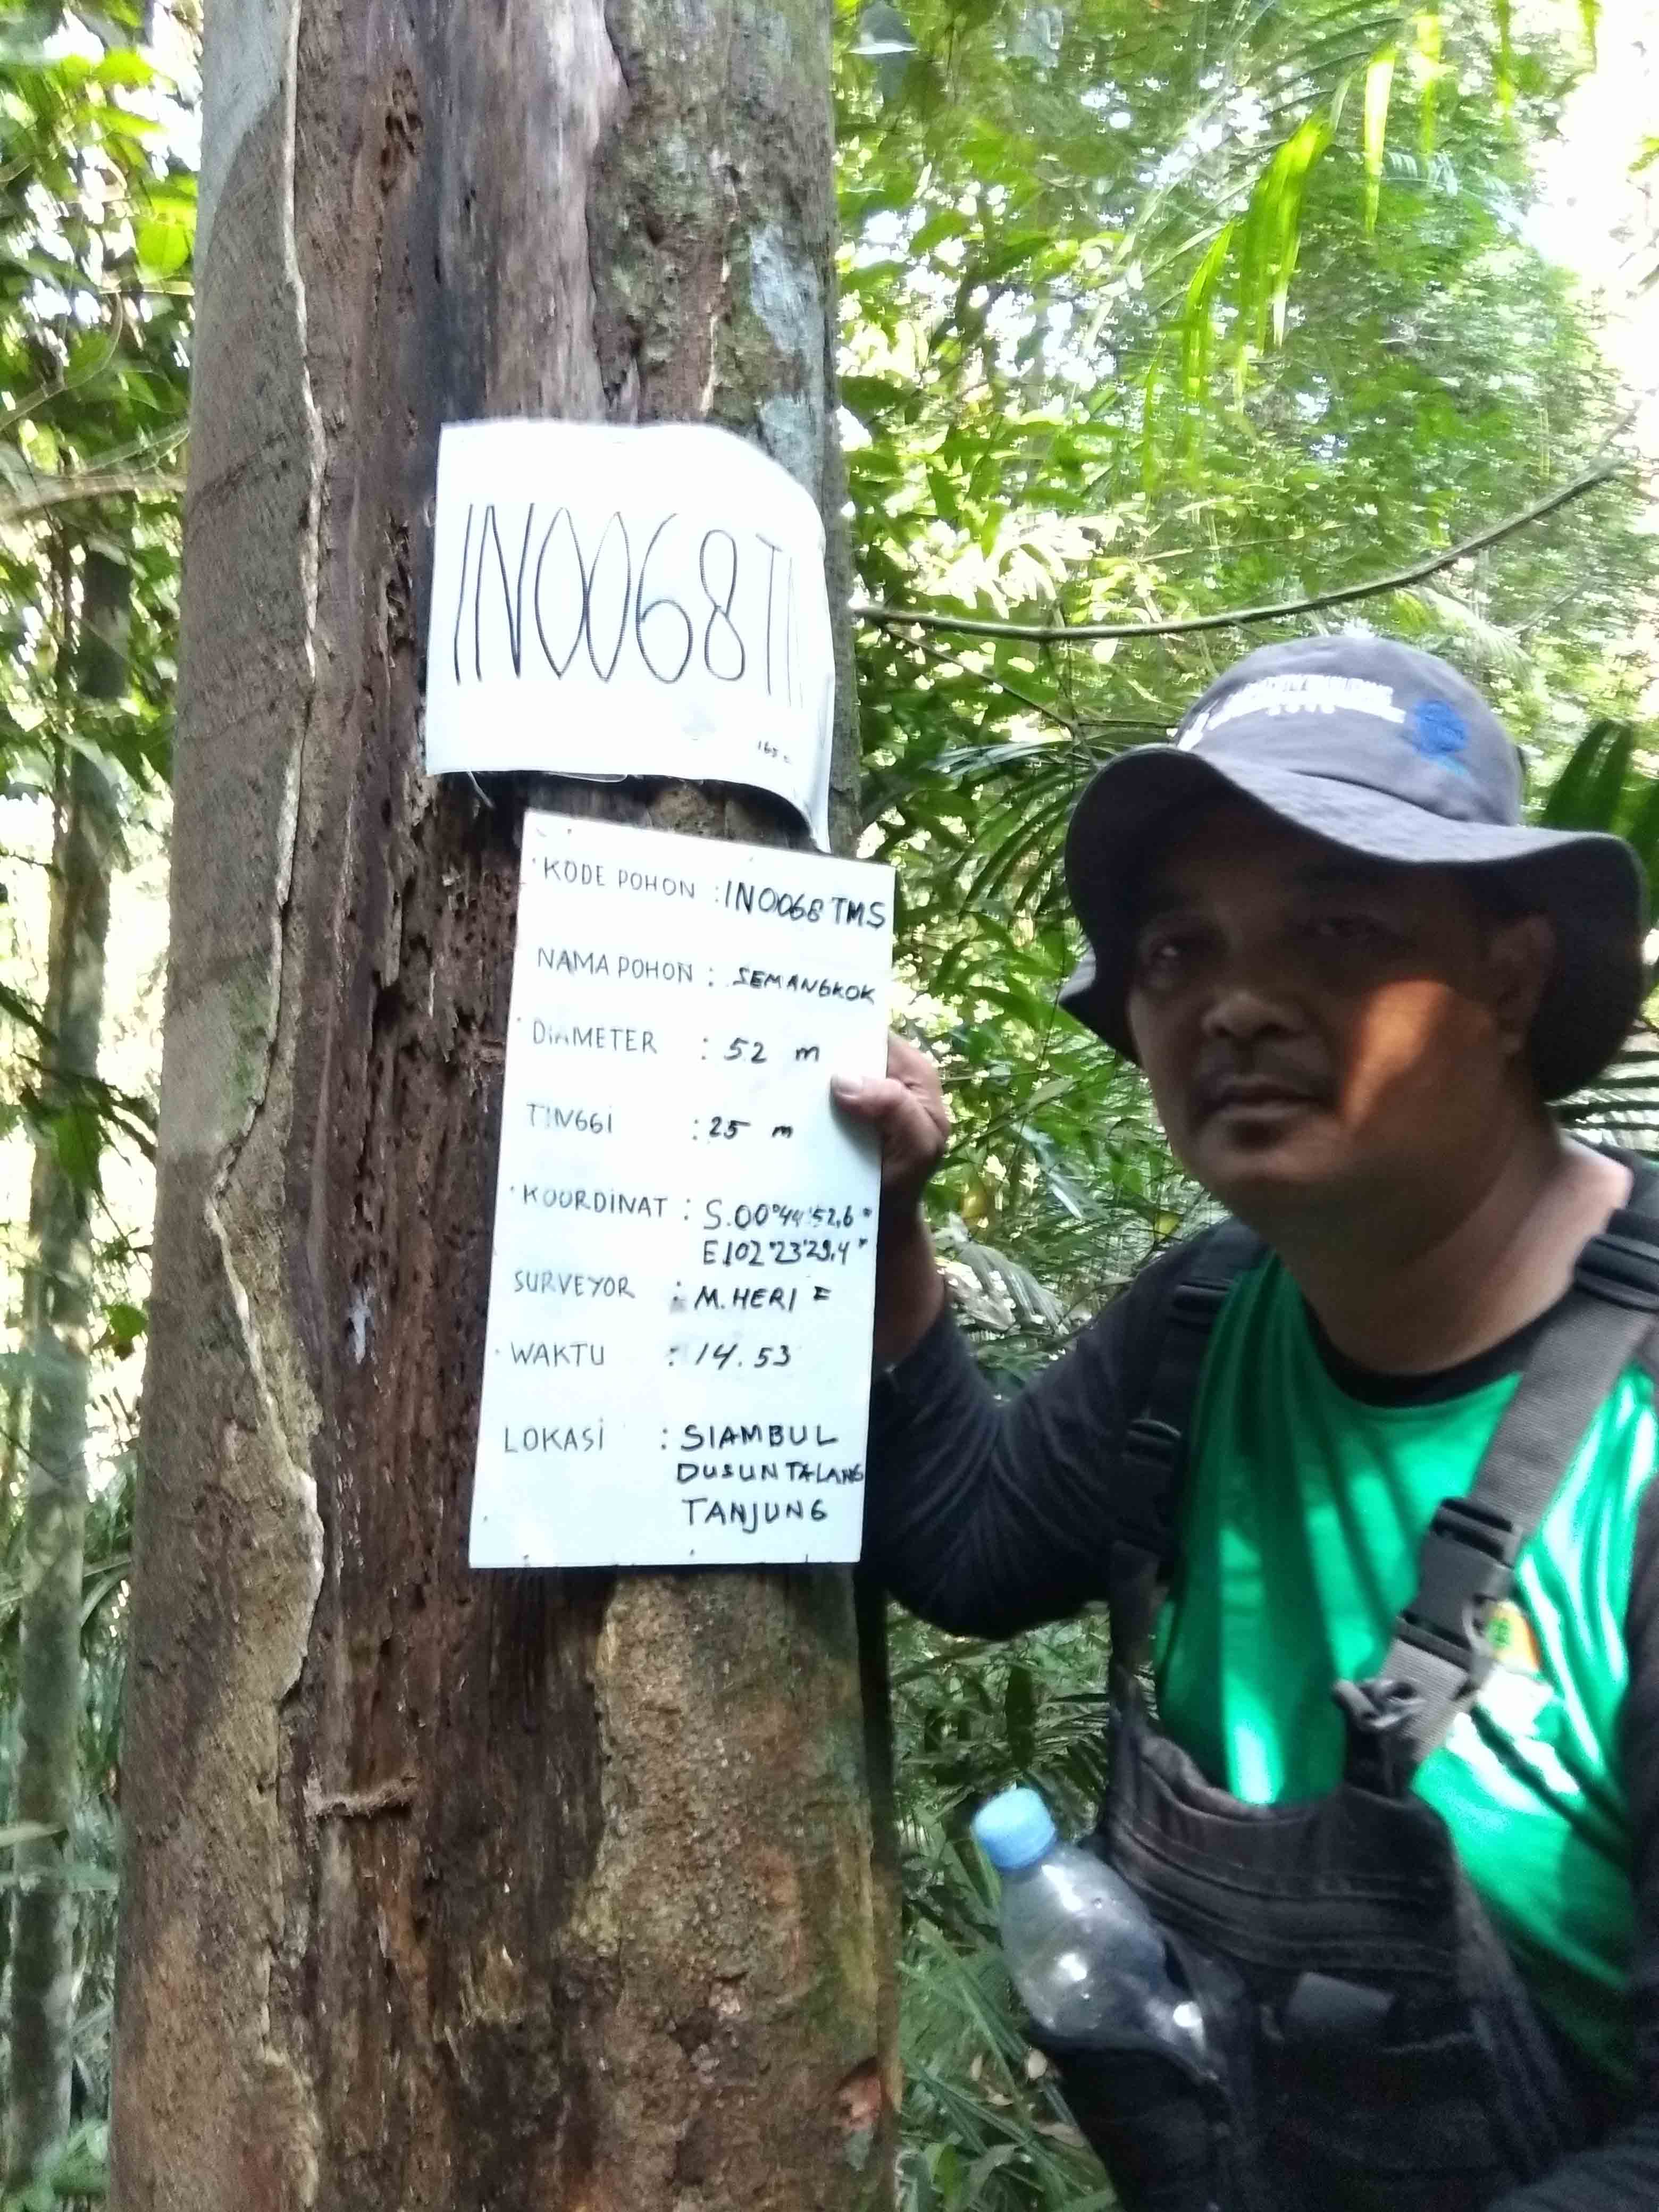 IN0068T
KODE POHON : IN0068 TMS
NAMA POHON : SEMANGKOK
DIAMETER : 52 m
TINGGI : 25 m
KOORDINAT : S.00°44'52,6"
E.102°23'29,4"
SURVEYOR : M.HERI E
WAKTU : 14.53
LOKASI : SIAMBUL
DUSUN TALANG
TANJUNG